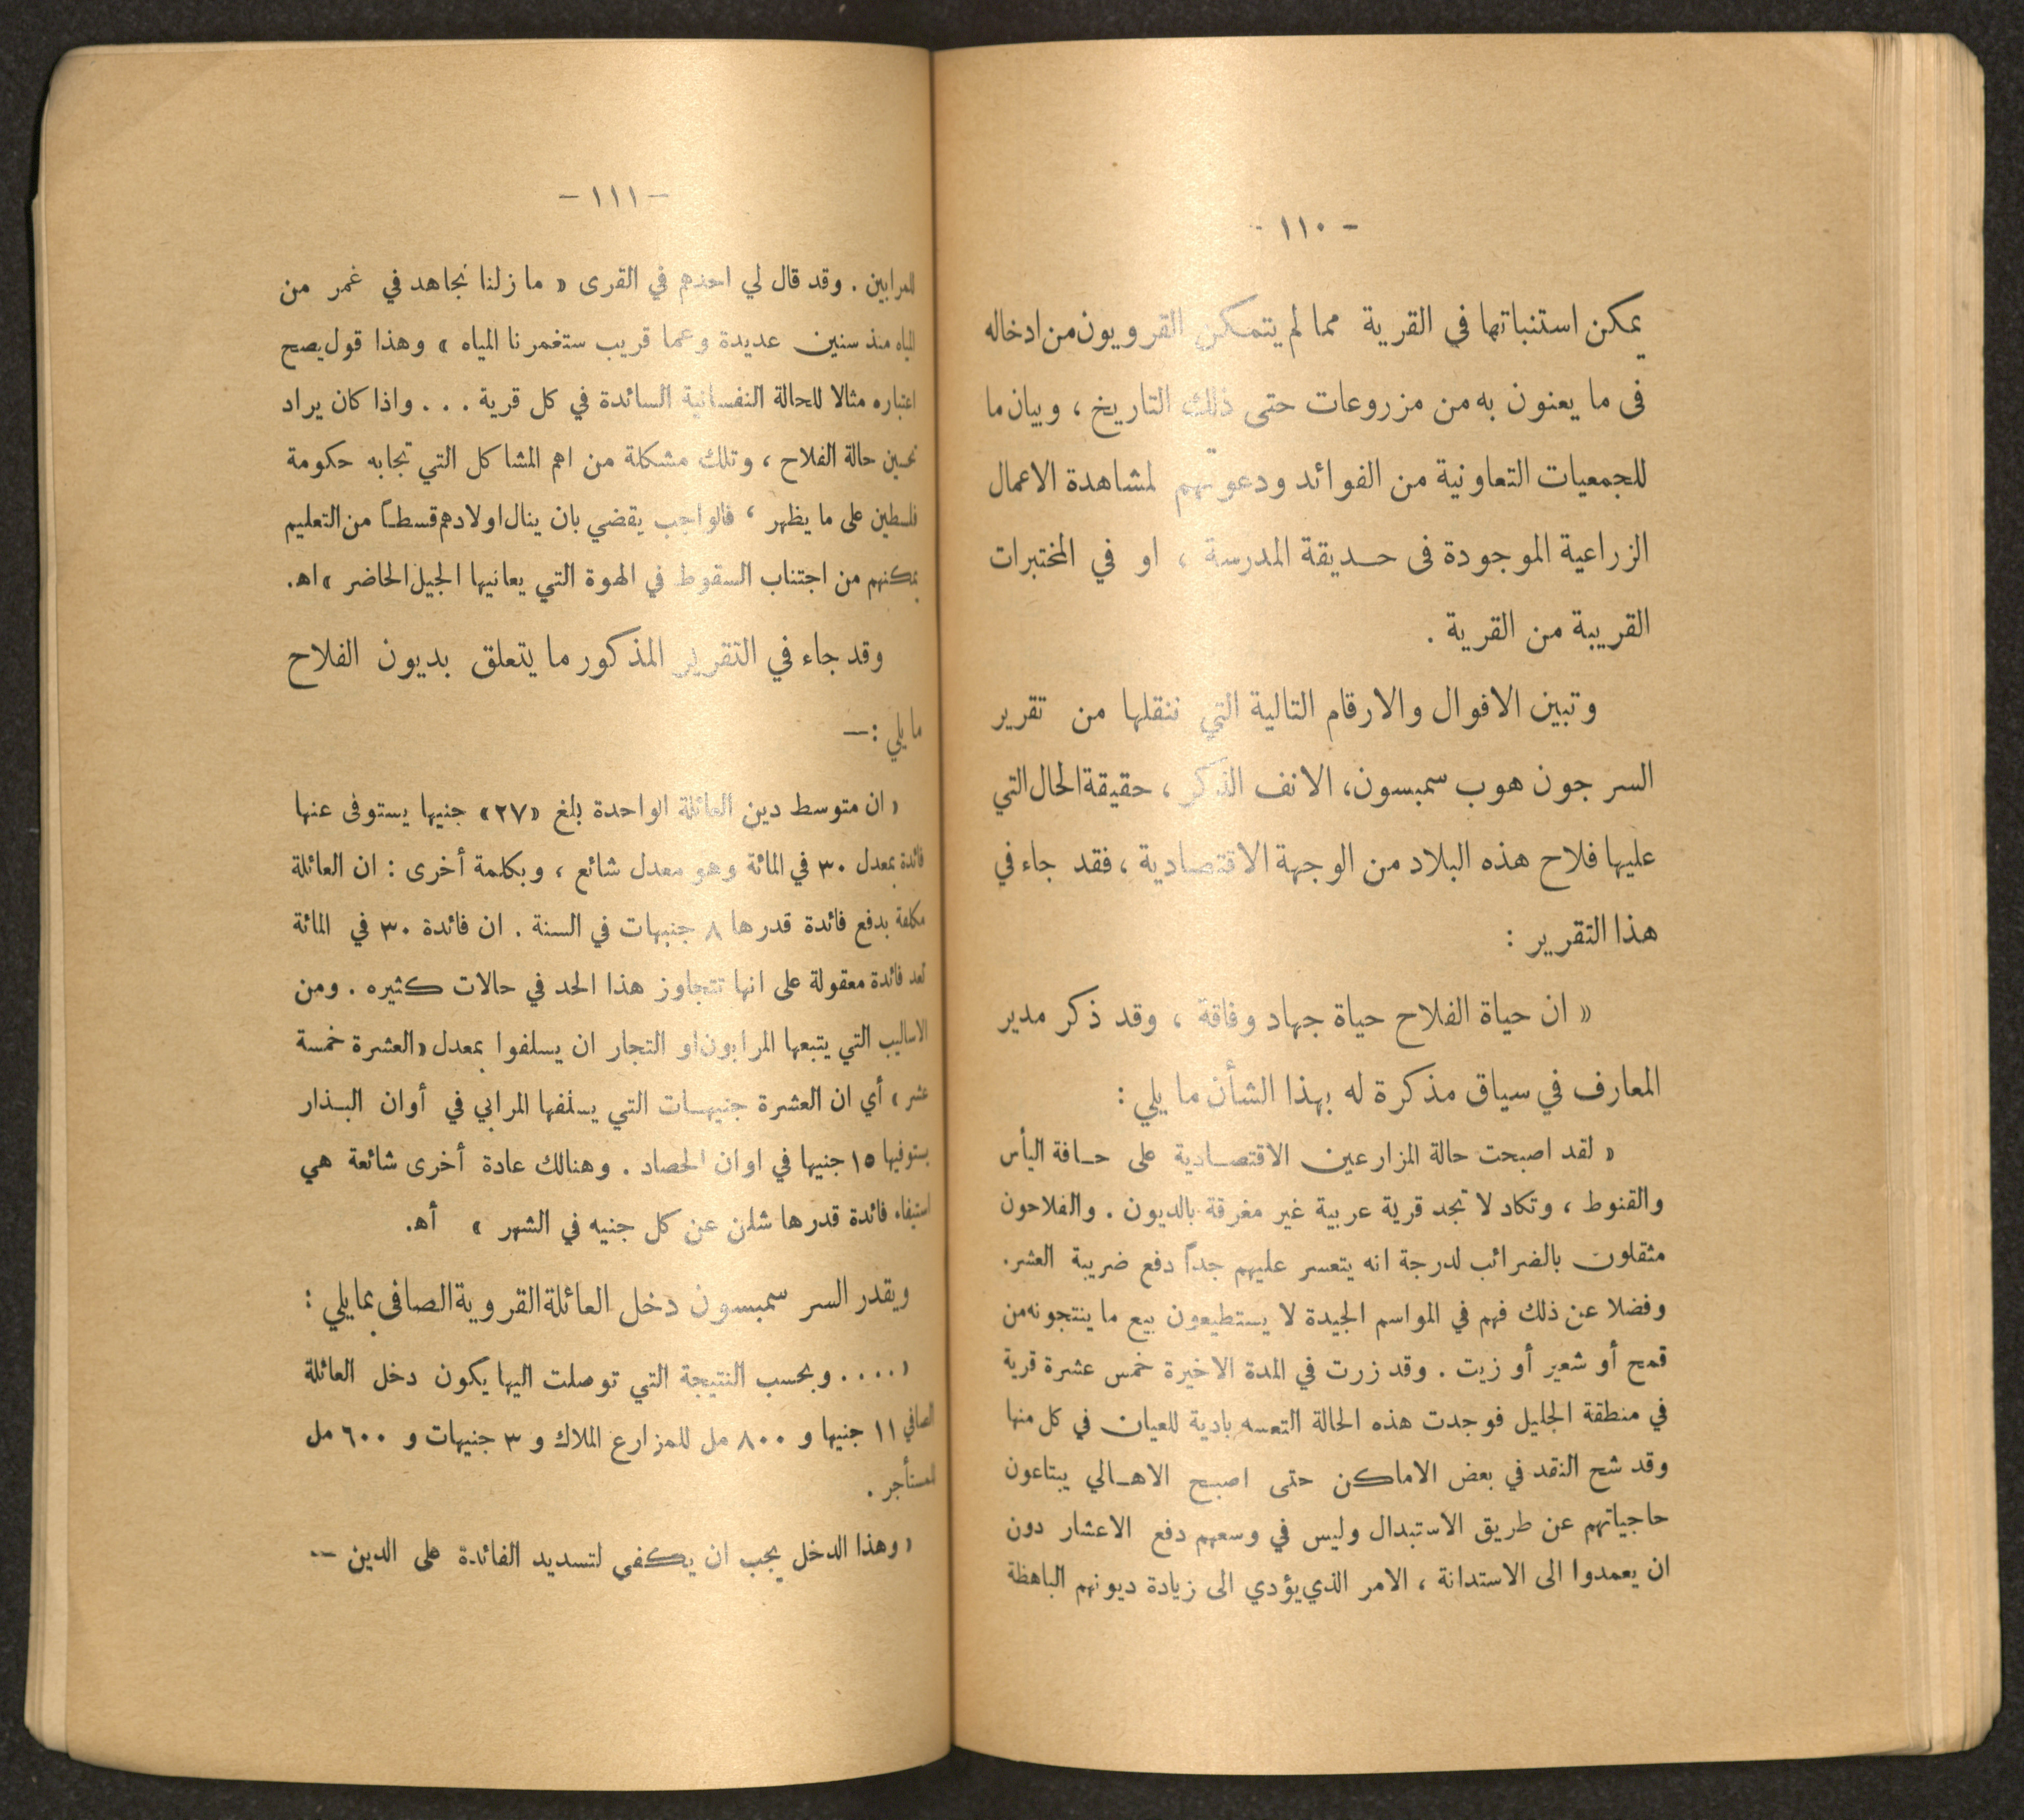 - ١١٠ -
يمكن استنباتها في القرية مما لم يتمكن القرويون من ادخاله
فى ما يعنون به من مزروعات حتى ذلك التاريخ ، وبيان ما
للجمعيات التعاونية من الفوائد ودعوتهم لمشاهدة الاعمال
الزراعية الموجودة فى حديقة المدرسة ، او في المختبرات
القريبة من القرية .
وتبين الافوال والارقام التالية التي ننقلها من تقرير
السر جون هوب سمبسون، الانف الذكر ، حقيقة الحال التي
عليها فلاح هذه البلاد من الوجهة الاقتصادية ، فقد جاء في
هذا التقرير :
« ان حياة الفلاح حياة جهاد وفاقة ، وقد ذكر مدير
المعارف في سياق مذكرة له بهذا الشأن ما يلي :
« لقد اصبحت حالة المزارعين الاقتصادية على حافة اليأس
والقنوط ، وتكاد لا تجد قرية عربية غير مغرقة بالديون . والفلاحون
مثقلون بالضرائب لدرجة انه يتعسر عليهم جداً دفع ضريبة العشر.
وفضلا عن ذلك فهم في المواسم الجيدة لا يستطيعون بيع ما ينتجونه من
قمح أو شعير أو زيت . وقد زرت في المدة الاخيرة خمس عشرة قرية
في منطقة الجليل فوجدت هذه الحالة التعسه بادية للعيان في كل منها
وقد شح النقد في بعض الاماكن حتى اصبح الاهالي يبتاعون
حاجياتهم عن طريق الاستبدال وليس في وسعهم دفع الاعشار دون
ان يعمدوا الى الاستدانة ، الامر الذي يؤدي الى زيادة ديونهم الباهظة
- ١١١ -
للمرابين . وقد قال لي احدهم في القرى « ما زلنا نجاهد في غمر من
المياه منذ سنين عديدة وعما قريب ستغمرنا المياه » وهذا قول يصح
اعتباره مثالا للحالة النفسانية السائدة في كل قرية . . . واذا كان يراد
تحسين حالة الفلاح ، وتلك مشكلة من اهم المشاكل التي تجابه حكومة
فلسطين على ما يظهر ، فالواجب يقضي بان ينال اولادهم قسطاً من التعليم
يمكنهم من اجتناب السقوط في الهوة التي يعانيها الجيل الحاضر » اهـ.
وقد جاء في التقرير المذكور ما يتعلق بديون الفلاح
ما يلي : —
« ان متوسط دين العائلة الواحدة بلغ «٢٧» جنيها يستوفى عنها
فائدة بمعدل ٣٠ في المائة وهو معدل شائع ، وبكلمة أخرى : ان العائلة
مكلفة بدفع فائدة قدرها ٨ جنيهات في السنة . ان فائدة ٣٠ في المائة
تعد فائدة معقولة على انها تتجاوز هذا الحد في حالات كثيره . ومن
الاساليب التي يتبعها المرابون او التجار ان يسلفوا بمعدل «العشرة خمسة
عشر » أي ان العشرة جنيهات التي يسلفها المرابي في أوان البذار
يستوفيها ١٥ جنيها في اوان الحصاد . وهنالك عادة أخرى شائعة هي
استيفاء فائدة قدرها شلن عن كل جنيه في الشهر » أهـ.
ويقدر السر سمبسون دخل العائلة القروية الصافى بما يلي :
« . . . . وبحسب النتيجة التي توصلت اليها يكون دخل العائلة
الصافي ١١ جنيها و ٨٠٠ مل للمزارع الملاك و ٣ جنيهات و ٦٠٠ مل
للمستأجر .
« وهذا الدخل يجب ان يكفي لتسديد الفائدة على الدين —